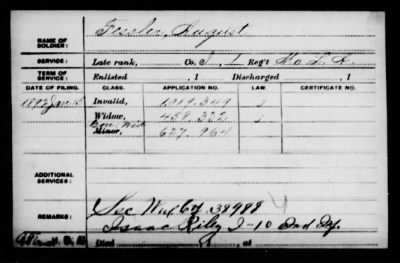 NAME OF SOLDIER: Fessler, August
SERVICE: Late rank, Co. I, 1 Reg't Mo. L. A.
TERM OF SERVICE: Enlisted , 1 Discharged , 1
DATE OF FILING. CLASS. APPLICATION NO. LAW. CERTIFICATE NO.
1892 Invalid, 1.019.349
Widow, 458.332
Con. Wid
Minor, 627.964
ADDITIONAL SERVICES:
REMARKS: See 38988
Isaac Riley I-10
Died , 1 , at